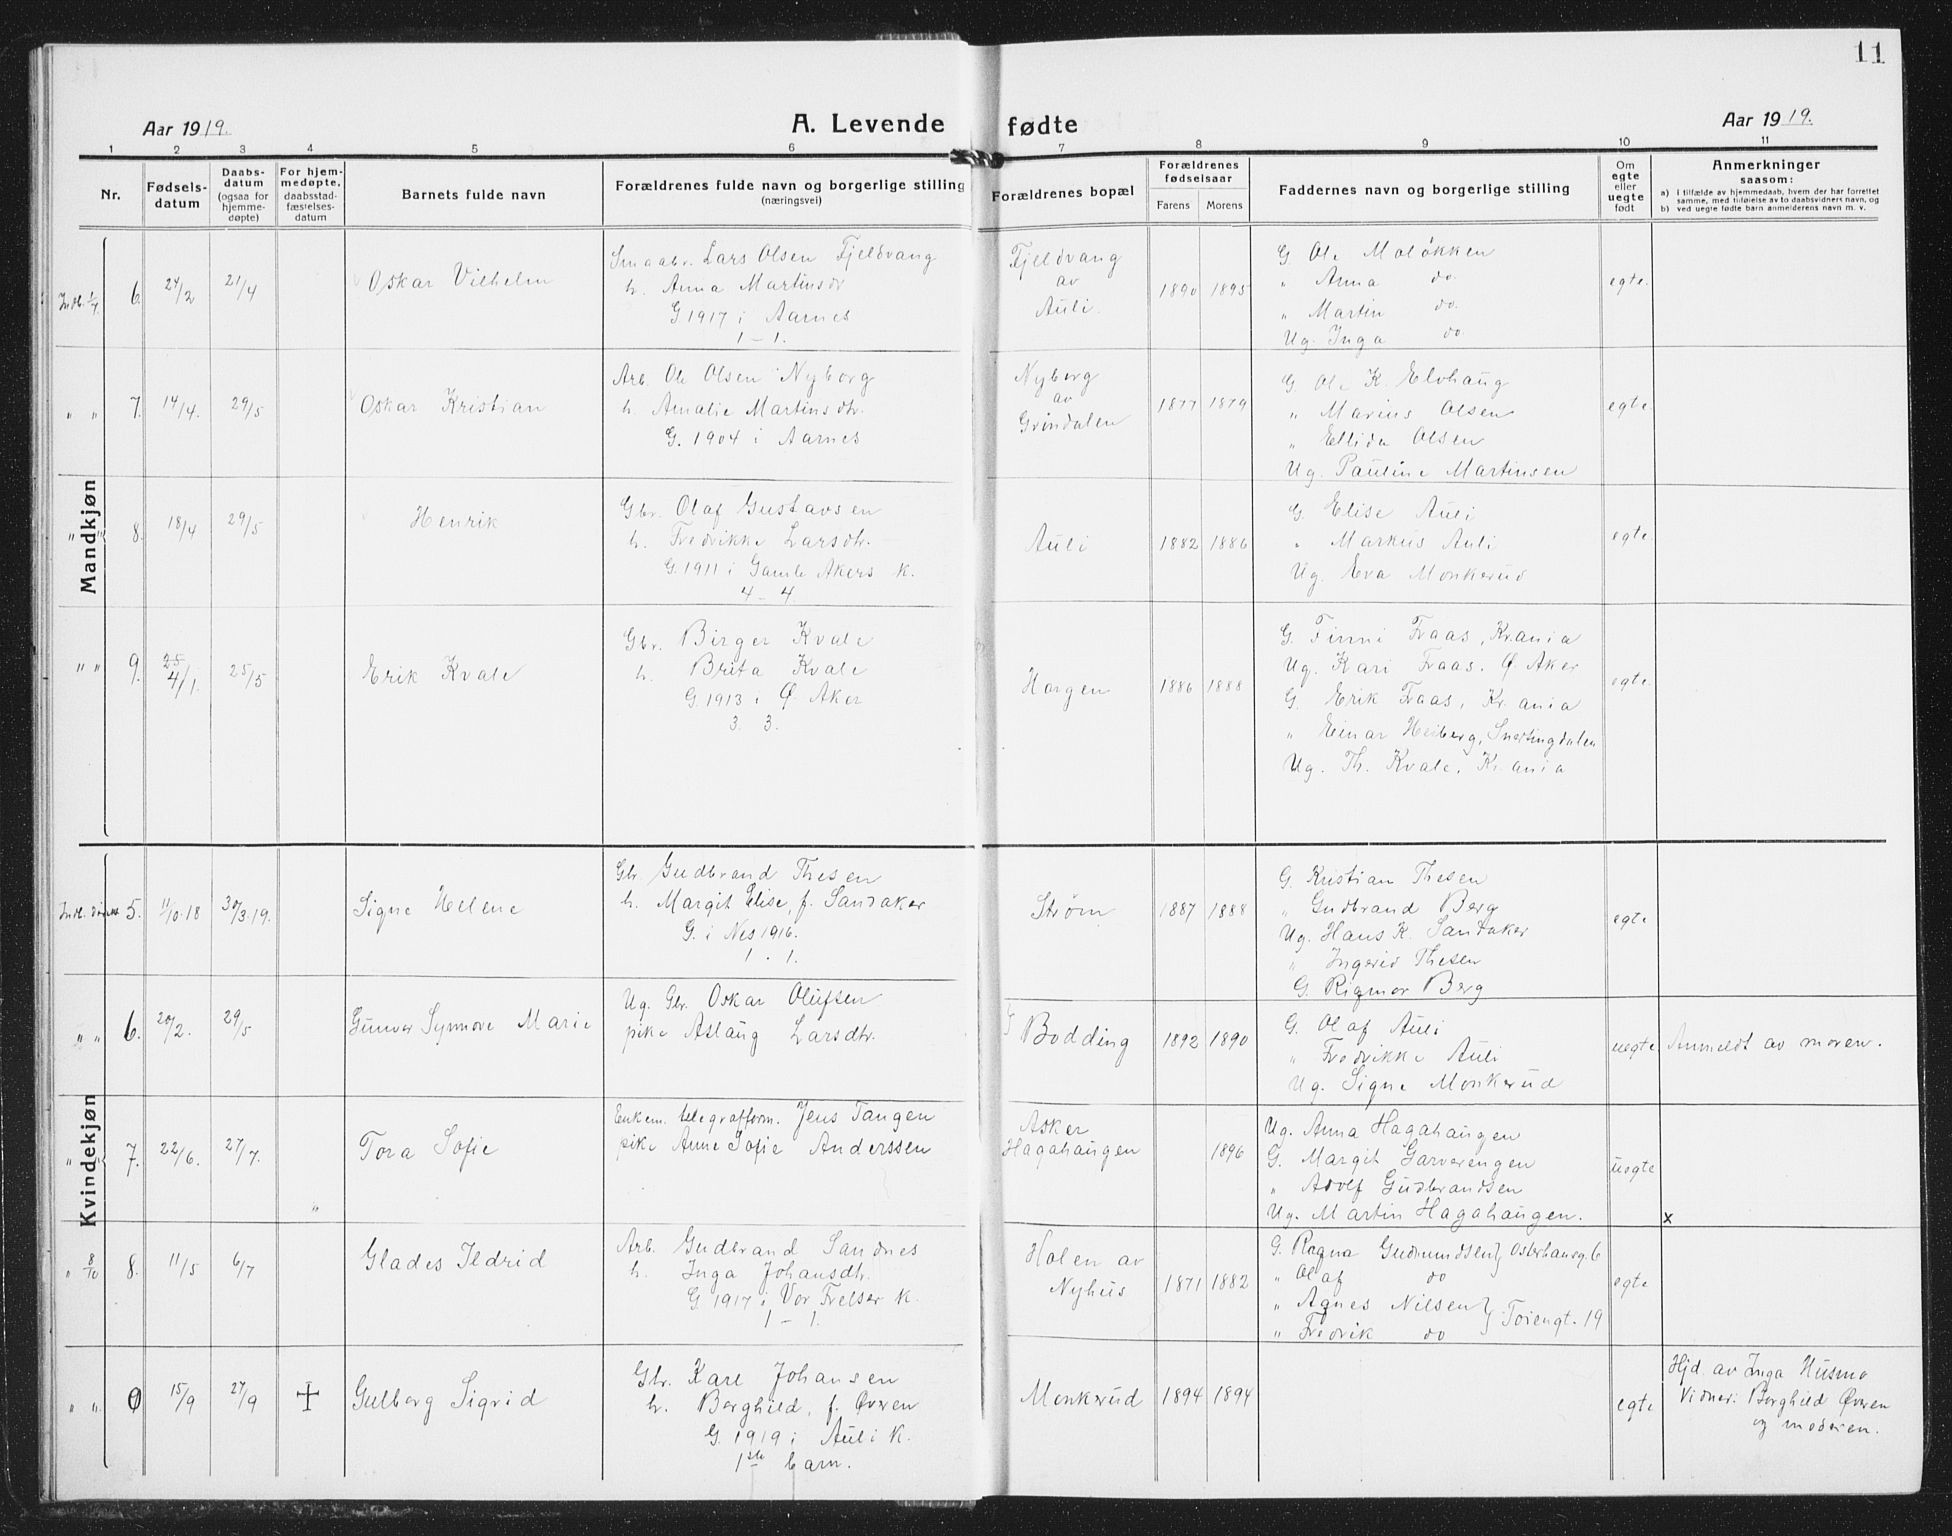 11
Aar 1919. A. Levende fødte Aar 1919.
1 2 3 4 5 6 7 8 9 10 11
Nr.
Fødsels-
datum
Daabs-
datum
(ogsaa for
hjemme-
døpte)
For hjem-
medøpte,
daabsstad-
fæstelses-
datum
Barnets fulde navn
Forældrenes fulde navn og borgerlige stilling
(næringsvei)
Forældrenes bopæl
Forældrenes
fødselsaar
Farens Morens
Faddernes navn og borgerlige stilling
Om
egte
eller
uegte
født
Anmerkninger
saasom:
a) I tilfælde av hjemmedaab, hvem der har forrettet
samme, med tilføielse av to daabsvidners navn, og
b) ved uegte fødte barn anmelderens navn m. v.
Mandkjøn
Indb. 1/4 6. 24/2 21/4 Oskar Vilhelm
Smaabr. Lars Olsen Fjeldvang
h. Anna Martinsdr
G. 1917 i Aarnes
1 - 1.
Fjeldvang
av
Auli.
1890 1895
G. Ole Moløkken
" Anna do.
" Martin do.
Ug. Inga do
egte.
" " 7. 14/4. 29/5 Oskar Kristian
Arb. Ole Olsen Nyborg
h. Amalie Martinsdtr.
G. 1904 i Aarnes
Nyborg
av
Grindalen
1877 1879
G. Ole K. Elvhaug
" Marius Olsen
" Ellida Olsen
Ug. Pauline Martinsen
egte.
" " 8. 18/4 29/5 Henrik
Gbr. Olaf Gustavsen
h. Fredrikke Larsdtr.
G. 1911 i Gamle Akers K.
4 - 4.
Auli
1882 1886
G. Elise Auli
" Markus Auli
Ug. Eva Monkerud
egte.
" " 9. 25/5 Erik Kvale
Gbr. Birger Kvale
h. Brita Kvale
G. 1913 i Ø. Aker
3. 3.
Horgen
1886 1888
G. Finni Fraas, Kr.ania
Ug. Kari Fraas. Ø. Aker
G. Erik Fraas, Kr.ania
" Einar Heiberg, Snertingdalen
Ug. Th. Kvale, Kr.ania
egte.
Kvindekjøn
5. 11/10.18 30/3.19. Signe Helene
Gbr. Gudbrand Thesen
h. Margit Elise, f. Sandaker
G. i Nes 1916.
1 . 1.
Strøm
1887 1888
G. Kristian Thesen
" Gudbrand Berg
Ug. Hans K. Sandaker
" Ingerid Thesen
G. Rigmor Berg
egte
" " 6. 20/2. 29/5 Gunvor Synnøve Marie
Ug. Gbr. Oskar Olufsen
pike Aslaug Larsdtr.
Bodding
1892 1890
G. Olaf Auli
" Fredrikke Auli
Ug. Signe Monkerud
uegte. Anmeldt av moren.
" " 7. 22/6. 27/7. Tora Sofie
Enkem. telegrafform. Jens Tangen
pike Anne Sofie Anderssen
Asker
Hagahaugen
1896
Ug. Anna Hagahaugen
G. Margit Garverengen
" Adolf Gudbrandsen
Ug. Martin Hagahaugen.
uegte
x
" 8/10 8. 11/5 6/7 Glades Ildrid
Arb. Gudbrand Sandnes
h. Inga Johansdtr.
G. 1917 i Vor Frelser K.
1 - 1.
Holen av
Nyhus
1871 1882
G. Ragna Gudmundsen} Osterhausg. 6
" Olaf do
" Agnes Nilsen} Toiengt. 19
" Fredrik do
egte
" " 0 15/9 27/9 Gulborg Sigrid
Gbr. Karl Johansen
h. Borghild, f. Øveren
G. 1919 i Auli K.
1ste barn.
Monkrud
1894 1894
egte
Hjd. av Inga Husmo
Vidner: Borghild Øveren
og moderen.